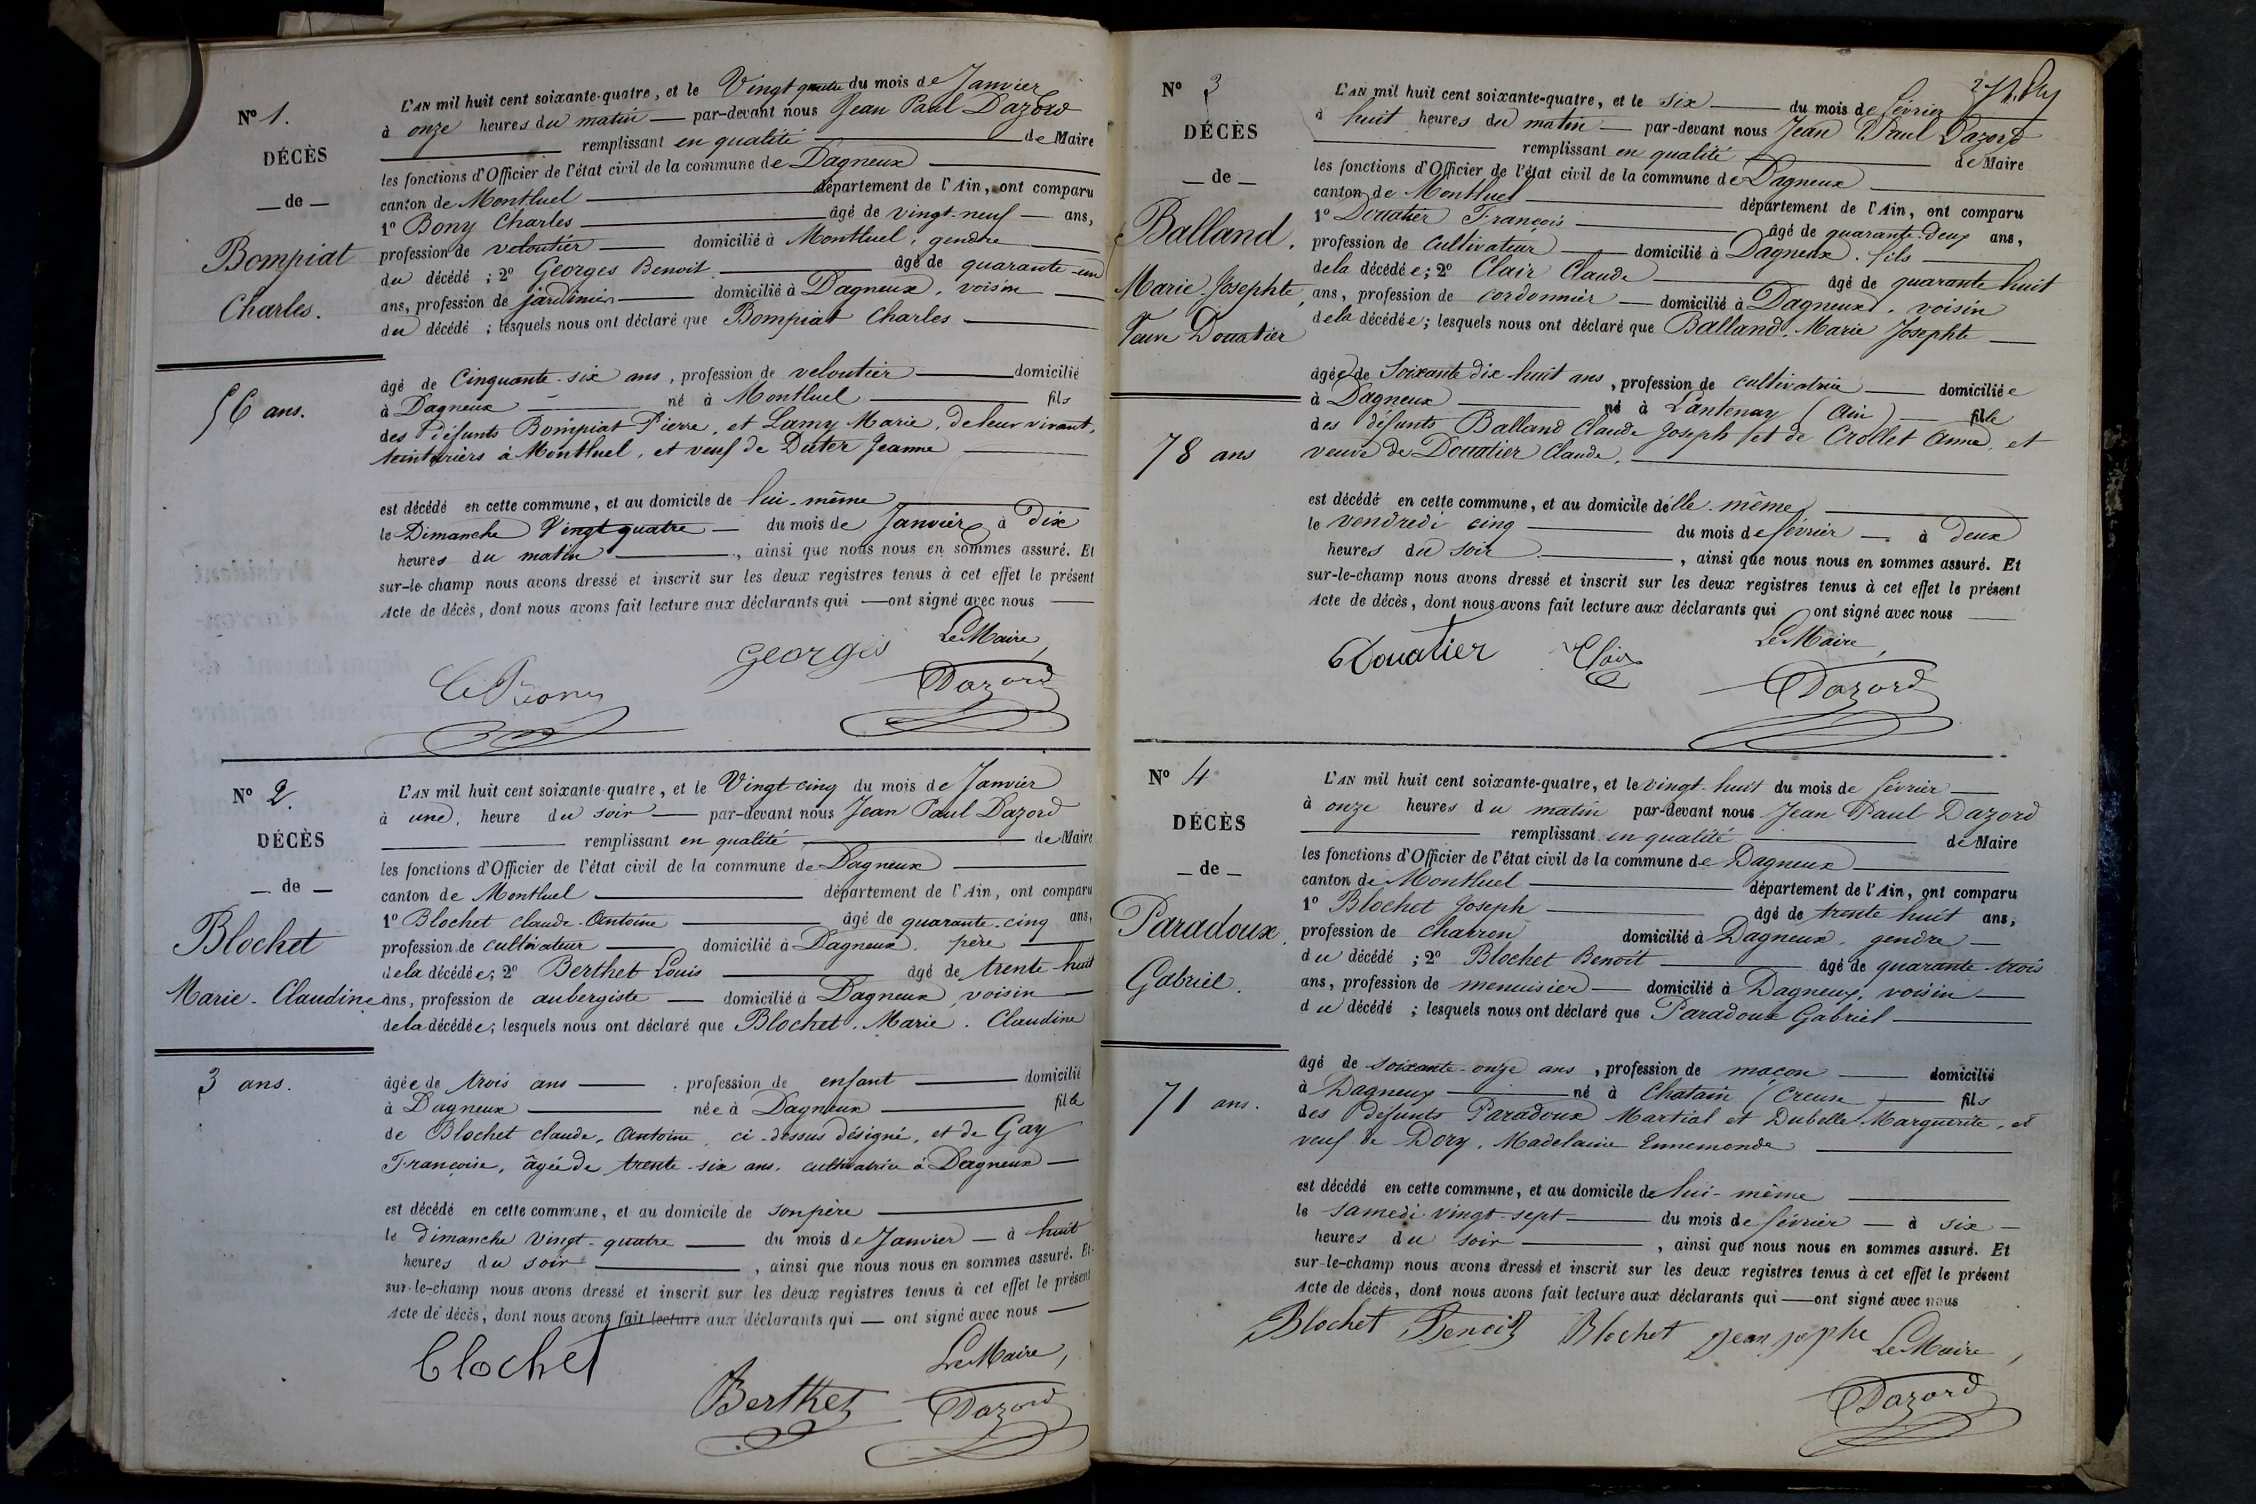 N° 1.
DÉCÈS
— de —
Bompiat
Charles.
56 ans.
L'AN mil huit cent soixante-quatre, et le Vingt quatre du mois de Janvier
à onze heures du matin — par-devant nous Jean Paul Dazord
remplissant en qualité de Maire
les fonctions d'Officier de l'état civil de la commune de Dagneux
canton de Montluel département de l'Ain, ont comparu
1° Bony Charles âgé de vingt-neuf ans,
profession de veloutier domicilié à Montluel, gendre
du décédé ; 2° Georges Benoit âgé de quarante-un
ans, profession de jardinier domicilié à Dagneux, voisin
du décédé ; lesquels nous ont déclaré que Bompiat Charles
âgé de Cinquante-six ans, profession de veloutier domicilié
à Dagneux né à Montluel fils
des défunts Bompiat Pierre, et Lamy Marie, de leur vivant,
teinturiers à Montluel, et veuf de Duter Jeanne
est décédé en cette commune, et au domicile de lui-même
le Dimanche Vingt quatre du mois de Janvier à Dix
heures du matin, ainsi que nous nous en sommes assuré. Et
sur-le-champ nous avons dressé et inscrit sur les deux registres tenus à cet effet le présent
Acte de décès, dont nous avons fait lecture aux déclarants qui — ont signé avec nous
Georges Le Maire,
Dazord
N° 2.
DÉCÈS
— de —
Blochet
Marie-Claudine
3 ans.
L'AN mil huit cent soixante-quatre, et le Vingt cinq du mois de Janvier
à une heure du soir — par-devant nous Jean Paul Dazord
remplissant en qualité de Maire
les fonctions d'Officier de l'état civil de la commune de Dagneux
canton de Montluel département de l'Ain, ont comparu
1° Blochet claude-Antoine âgé de quarante-cinq ans,
profession de cultivateur domicilié à Dagneux, père
de la décédée; 2° Berthet Louis âgé de trente-huit
ans, profession de aubergiste — domicilié à Dagneux, voisin
de la décédée; lesquels nous ont déclaré que Blochet, Marie. Claudine
âgée de trois ans, profession de enfant domicilié
à Dagneux née à Dagneux fille
de Blochet claude-Antoine, ci-dessus désigné, et de Gay
Françoise, âgée de trente-six ans, cultivatrice à Dagneux
est décédé en cette commune, et au domicile de son père
le dimanche vingt-quatre du mois de Janvier — à huit
heures du soir, ainsi que nous nous en sommes assuré. Et
sur-le-champ nous avons dressé et inscrit sur les deux registres tenus à cet effet le présent
Acte de décès, dont nous avons fait lecture aux déclarants qui — ont signé avec nous
blochet Le Maire,
Berthet Dazord
N° 3
DÉCÈS
— de —
Balland.
Marie-Josephte,
Veuve Douatier
78 ans
L'AN mil huit cent soixante-quatre, et le six du mois de février
à huit heures du matin — par-devant nous Jean Paul Dazord
remplissant en qualité de Maire
les fonctions d'Officier de l'état civil de la commune de Dagneux
canton de Montluel département de l'Ain, ont comparu
1° Douatier François âgé de quarante-deux ans,
profession de cultivateur domicilié à Dagneux, fils
de la décédée; 2° Clair Claude âgé de quarante huit
ans, profession de cordonnier — domicilié à Dagneux, voisin
de la décédée; lesquels nous ont déclaré que Balland, Marie Josephte
âgée de Soixante dix-huit ans, profession de cultivatrice domiciliée
à Dagneux né à Lantenay (Ain) fille
des défunts Balland Claude Joseph et de Crollet Anne, et
veuve de Douatier Claude.
est décédé en cette commune, et au domicile d'elle-même
le vendredi cinq du mois de février — à deux
heures du soir, ainsi que nous nous en sommes assuré. Et
sur-le-champ nous avons dressé et inscrit sur les deux registres tenus à cet effet le présent
Acte de décès, dont nous avons fait lecture aux déclarants qui ont signé avec nous
Douatier Clair Le Maire,
Dazord
N° 4
DÉCÈS
— de —
Paradoux
Gabriel.
71 ans.
L'AN mil huit cent soixante-quatre, et le vingt-huit du mois de février
à onze heures du matin par-devant nous Jean Paul Dazord
remplissant en qualité de Maire
les fonctions d'Officier de l'état civil de la commune de Dagneux
canton de Montluel département de l'Ain, ont comparu
1° Blochet Joseph âgé de trente huit ans,
profession de charron domicilié à Dagneux, gendre
du décédé ; 2° Blochet Benoit âgé de quarante-trois
ans, profession de menuisier — domicilié à Dagneux, voisin
du décédé ; lesquels nous ont déclaré que Paradoux Gabriel
âgé de soixante-onze ans, profession de maçon domicilié
à Dagneux né à Chatain (Creuse fils
des défunts Paradoux Martial et Dubelle Marguerite, et
veuf de Dory, Madelaine Ennemonde
est décédé en cette commune, et au domicile de lui-même
le samedi vingt-sept du mois de février — à six
heures du soir, ainsi que nous nous en sommes assuré. Et
sur-le-champ nous avons dressé et inscrit sur les deux registres tenus à cet effet le présent
Acte de décès, dont nous avons fait lecture aux déclarants qui — ont signé avec nous
Blochet Benoit Blochet jean josephe Le Maire,
Dazord